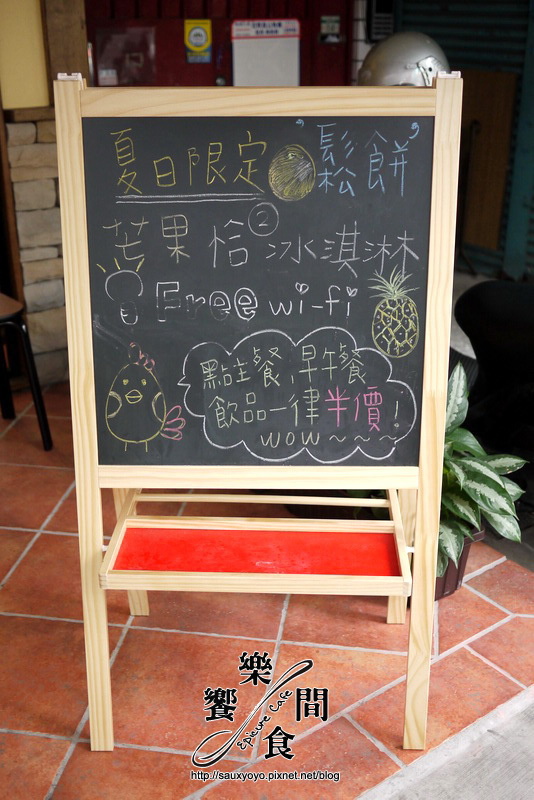 夏日限定 "鬆餅"
芒果恰② 冰淇淋
Free wi-fi
點主餐,早午餐
飲品一律半價!
wow~~~
樂間
饗食
Epicure Cafe
http://sauxyoyo.pixnet.net/blog